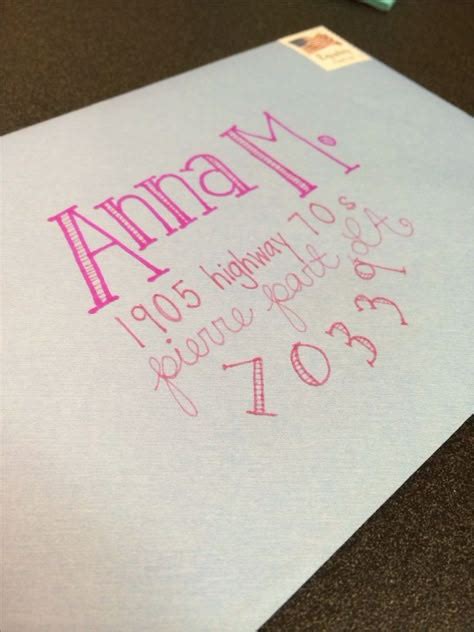 Equality
Anna M.
1905 highway 70 s
pierre part LA
70339